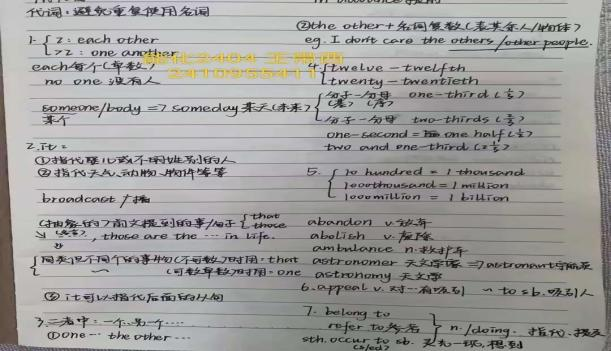 代词:避免重复使用名词
1. { 2: each other
>2: one another
each每个(单数)
no one 没有人
someone/body => someday某天(未来)
某个
2. it:
①指代婴儿或不明性别的人
②指代天气、动物、物件等等
broadcast 广播
(抽象的)前文提到的事/句子 { that
those
, those are the ... in life.
同类但不同个的事物(不可数)时用: that
(可数单数)时用: one
③it可以指代后面的从句
3. 二者中: 一个...另一个...
①one... the other...
②the other + 名词复数(表其余人/物体)
eg. I don't care the others/other people.
4. { twelve - twelfth
twenty - twentieth
分子-分母 one-third (1/3)
(基) (序)
分子-分母 two-thirds (2/3)
one-second = one half (1/2)
two and one-third (2 1/3)
5. { 10 hundred = 1 thousand
1000thousand = 1 million
1000million = 1 billion
abandon v.放弃
abolish v.废除
ambulance n.救护车
astronomer 天文学家 => astronaut宇航员
astronomy 天文学
6. appeal v. 对...有吸引 ~ to sb. 吸引人
7. belong to
refer to参考 { n./doing. 指代、提及
sth. occur to sb. 某力一现,想到
(s/ed)
2404 王
2410955411